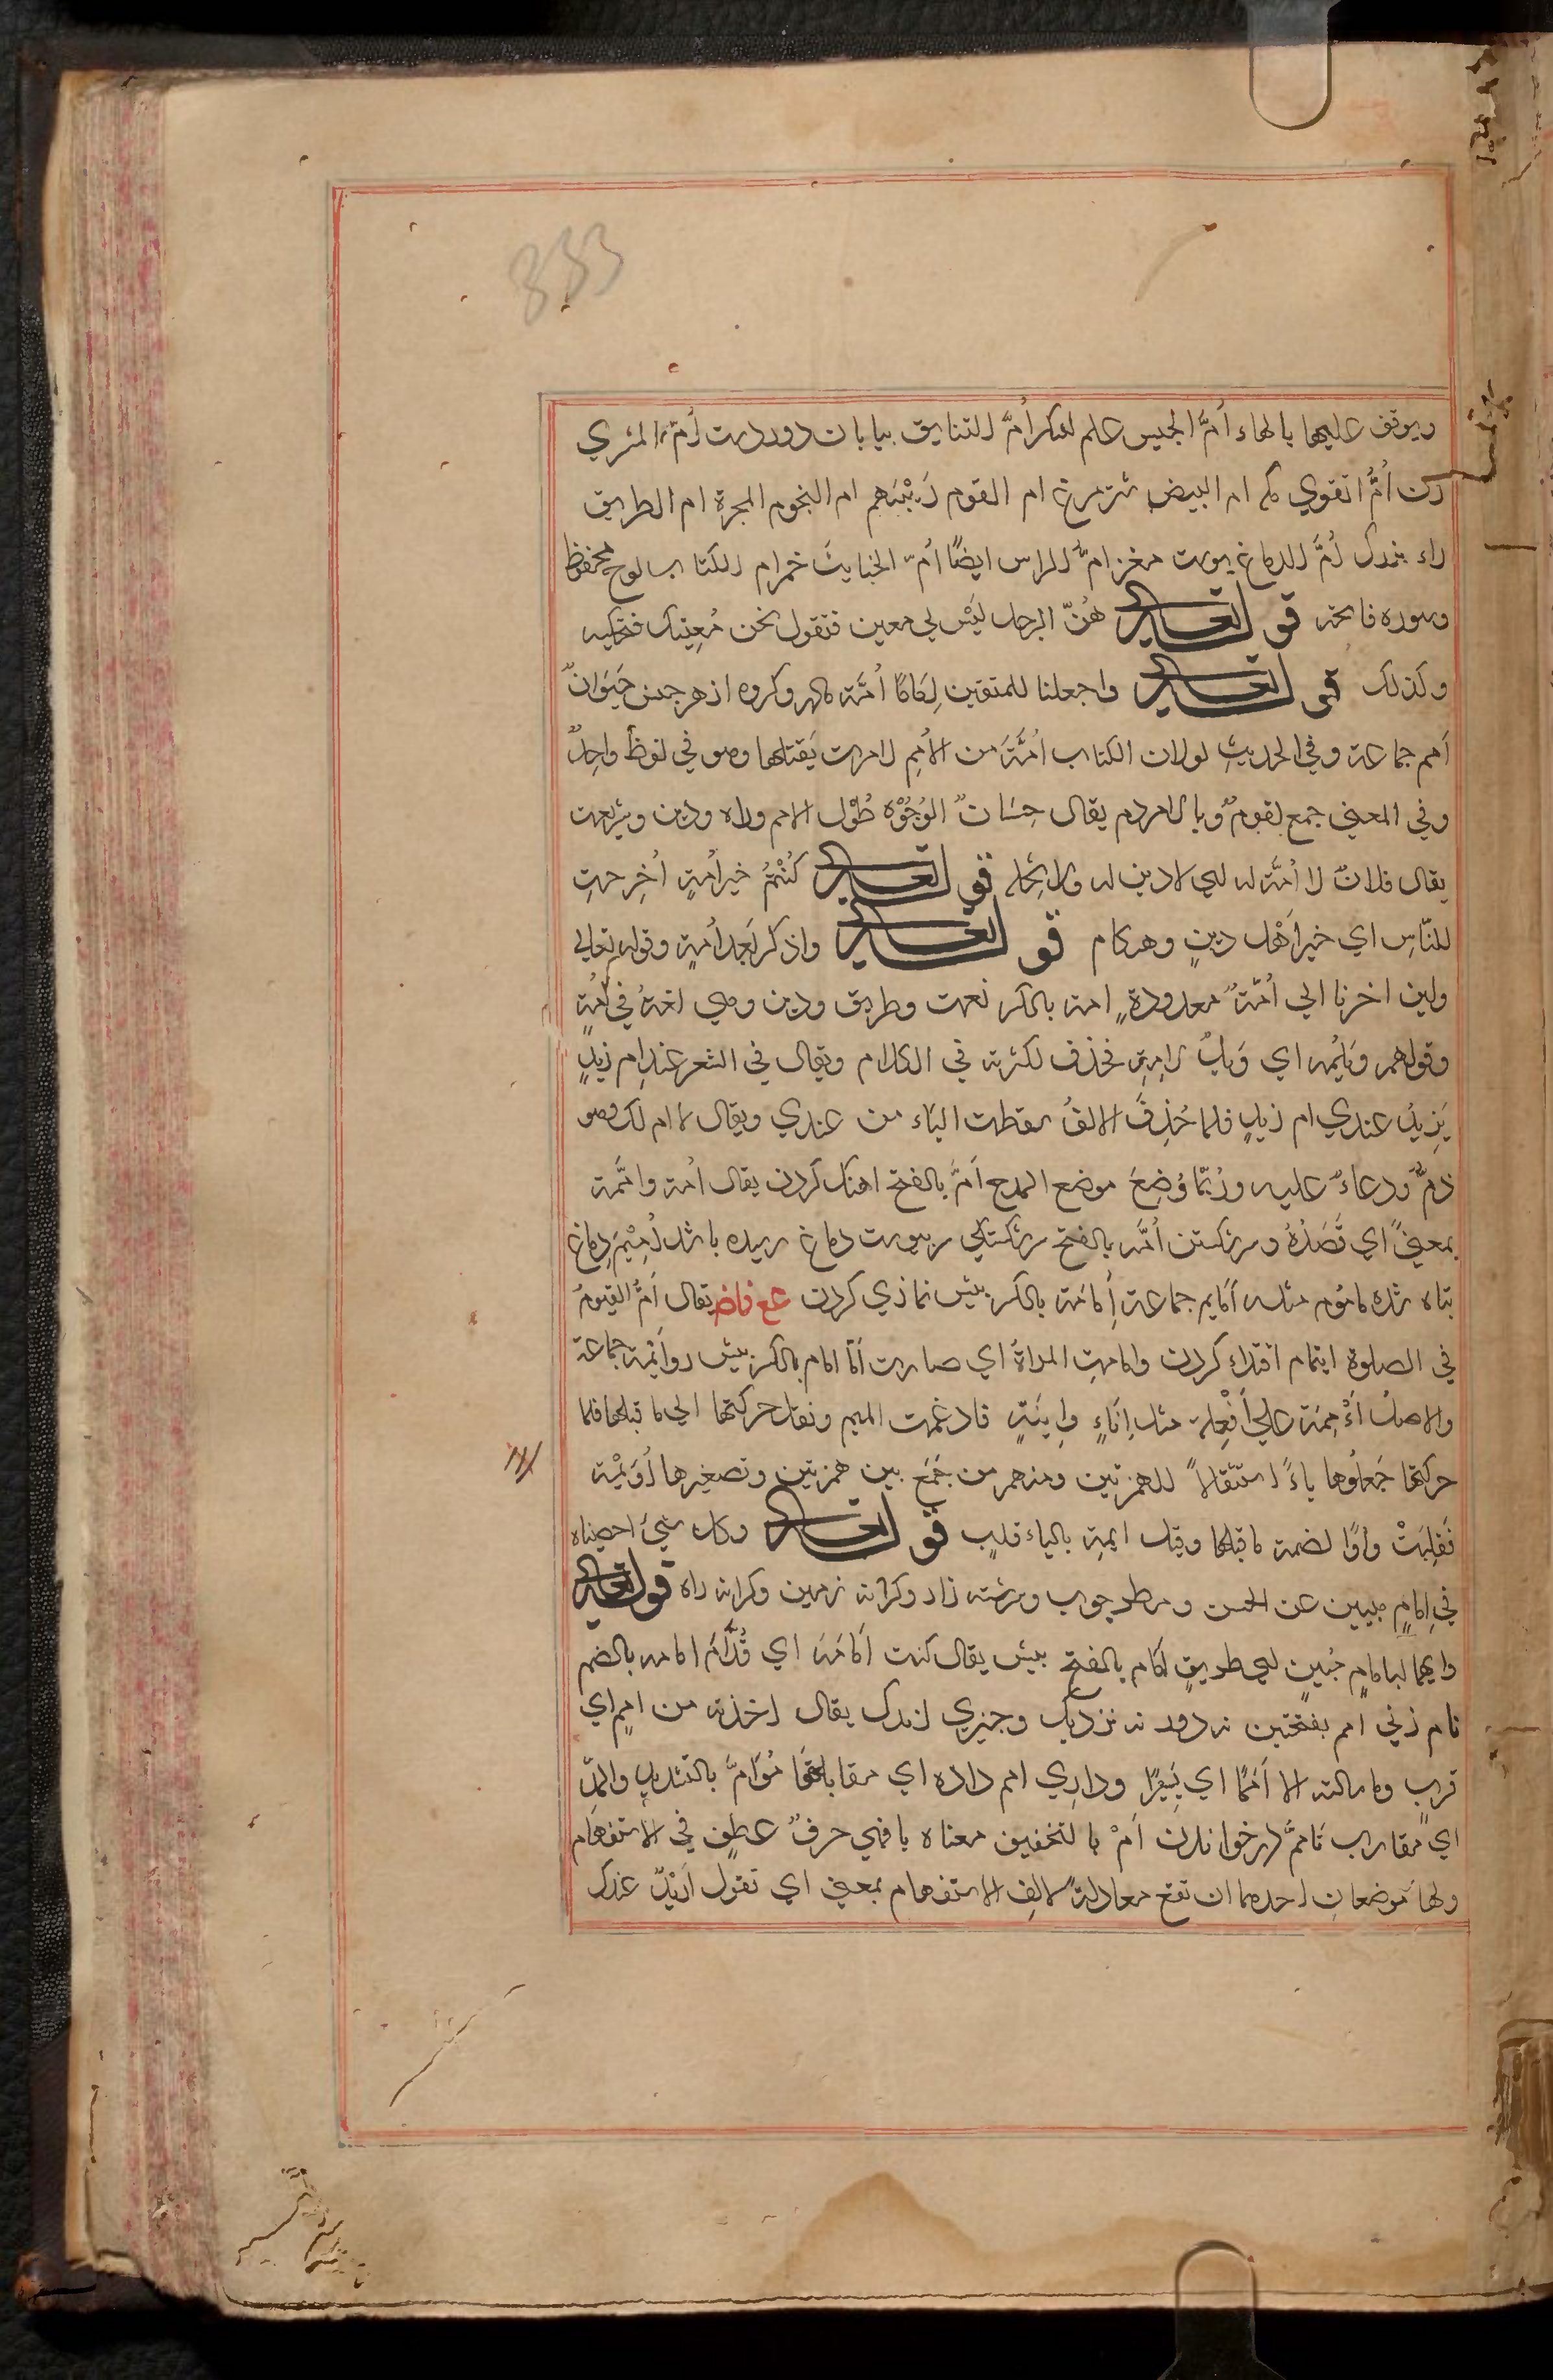 333
ويوقف عليها بالهاء أمّ الجيس علم لعكر أمّ التنايق بيابان دور دست أمّ المثري
زن أمّ القوي مكه ام البيض شترمرغ ام القوم رئيسهم ام النجوم المجرة ام الطريق
راه بزرك أمّ الدماغ پوست مغز امّ الراس ايضًا أمّ الخبايث خمر ام الكتاب لوح محفوظ
وسوره فاتحه قوله تعالى هُنّ الرجل لَيْسَ لي معين فتقول نحن مُعِينك فتحكيه
وكذلك قوله تعالى واجعلنا للمتقين إمَامًا أمّة كالهر وكروه از هر جنس حَيَوانٌ
أمم جماعة وفي الحديثِ لولا ان الكلاب أمّة من الأمم لامرت بقتلها وهو في لفظ واحدٌ
وفي المعنى جمع لقوم وبالا مردم يقال حِسَانٌ الوُجُوْه طُوْل الامم وراه ودين وشريعت
يقال فلانٌ لا أمّة له اي لا دين له ولا نِحْله قوله تعالى كُنْتُمْ خير أمةٍ أُخرجتِ
للنّاسِ اي خير أهْل دينٍ وهنكام قوله تعالى واذكر بَعد أمةٍ وقوله تعالى
ولين اخرنا الى أمّةٌ معدودةٍ امة بالكسر نعمت وطريق ودين وهي لغةٌ في أمة
وقولهم وَيْلِمّه اي وَيلٌ لامِّهِ فحذف لكثرته في الكلام ويقال في الشعر عندِام زيدٍ
يُرِيْدُ عندي ام زيدٍ فلما حُذِفَ الالفُ سقطت الياء من عندي ويقال لا ام لك وهو
ذمٌّ ودعاءٌ عليه ورُبّما وُضِعَ موضع المدح أمّ بالفتح اهنك كردن يقال أمه وامّمه
بمعنىً اي قَصَدَهُ وسر شكستن أمّه بالفتح سر شكستكي بپوست دماغ رسيده باشد أمِيْم دماغ
تباه شده مامُوم مثله أمايم جماعة إمَامَة بالكسر پيش نمازي كردن عع فاض يقال أمّ القومُ
في الصلوة ايتمام اقتداء كردن وامامتِ المراةُ اي صارت أمًّا امام بالكسر پيش رو أئمة جماعة
والاصلُ أَأْمِمَة على أفْعِلَة مثل إنَاءٍ وانيَةٍ فادغمت الميم ونقل حركتها الى ما قبلها فلما
حركتها جَعلوها ياءً استثقالاً للهمزتين ومنهم من جَمَعَ بين همزتين وتصغيرها أُوَيْمة
فَقلِبَتْ واوًا لضمة ما قبلها وقيل ايمة بالياء قلب قوله تعالى وكل شيءٍ احصيناه
في امامٍ مبين عن الحسن ومسطر چوب ورشته زاد وكرانه زمين وكرانه راه قوله تعالى
وانهما لبامامٍ مبينٍ اي طريقٍ أمام بالفتح پيش يقال كنت أمَامَهُ اي قُدَّامَهُ امامه بالضم
نام زني امم بفتحتين نه دور نه نزديك وچيزي اندك يقال اخذته من اممٍ اي
قربٍ وما سالته الا أممًا اي يَسِيْرًا وداري امم داره اي مقابلها مُؤَامّ بالتشديد والمدّ
اي مقارب تأممَّ مادر خواندن أمْ بالتخفيف معناه يا فهي حرفُ عطفٍ في الاستفهام
ولها موضعانِ احدهما ان تقع معادلةً لالفِ الاستفهام بمعنى اي تقول أزَيْدٌ عندك